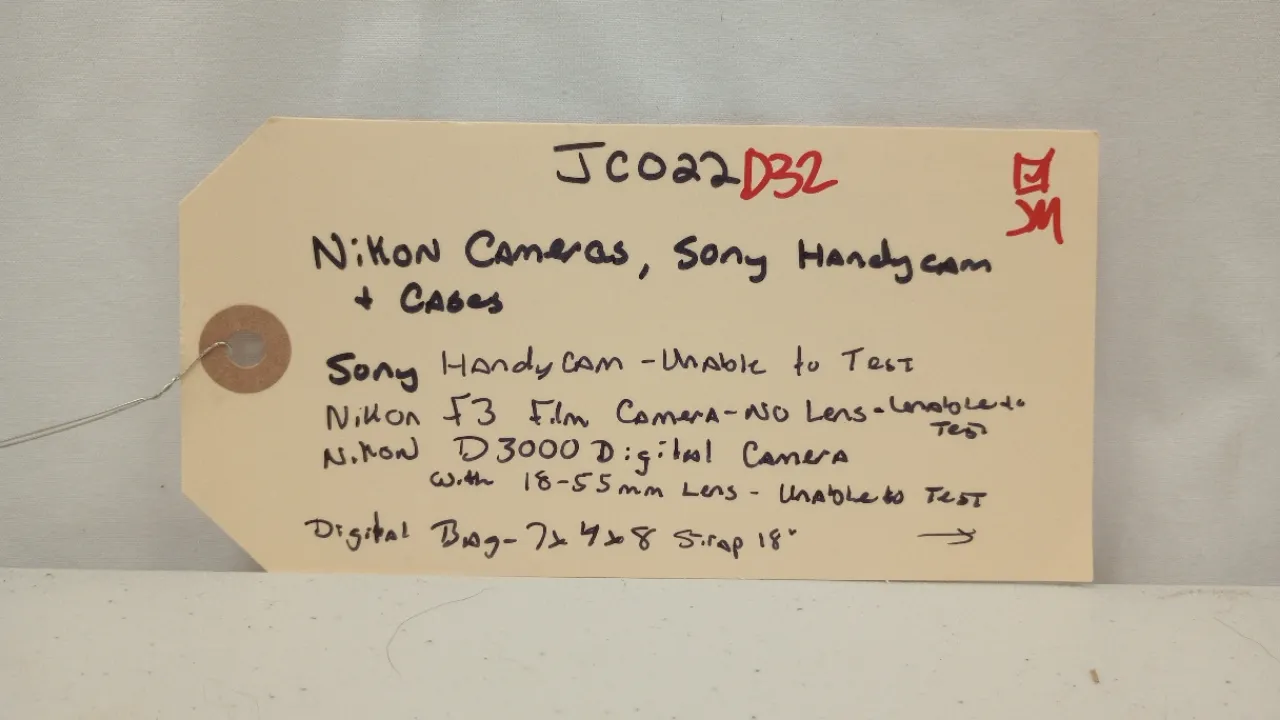 JC022D32
JM
Nikon Cameras, Sony Handycam
+ Cases
Sony Handycam - Unable to Test
Nikon F3 Film Camera - No Lens - Unable to
Test
Nikon D3000 Digital Camera
with 18-55mm Lens - Unable to Test
Digital Bag - 7x4x8 Strap 18" →